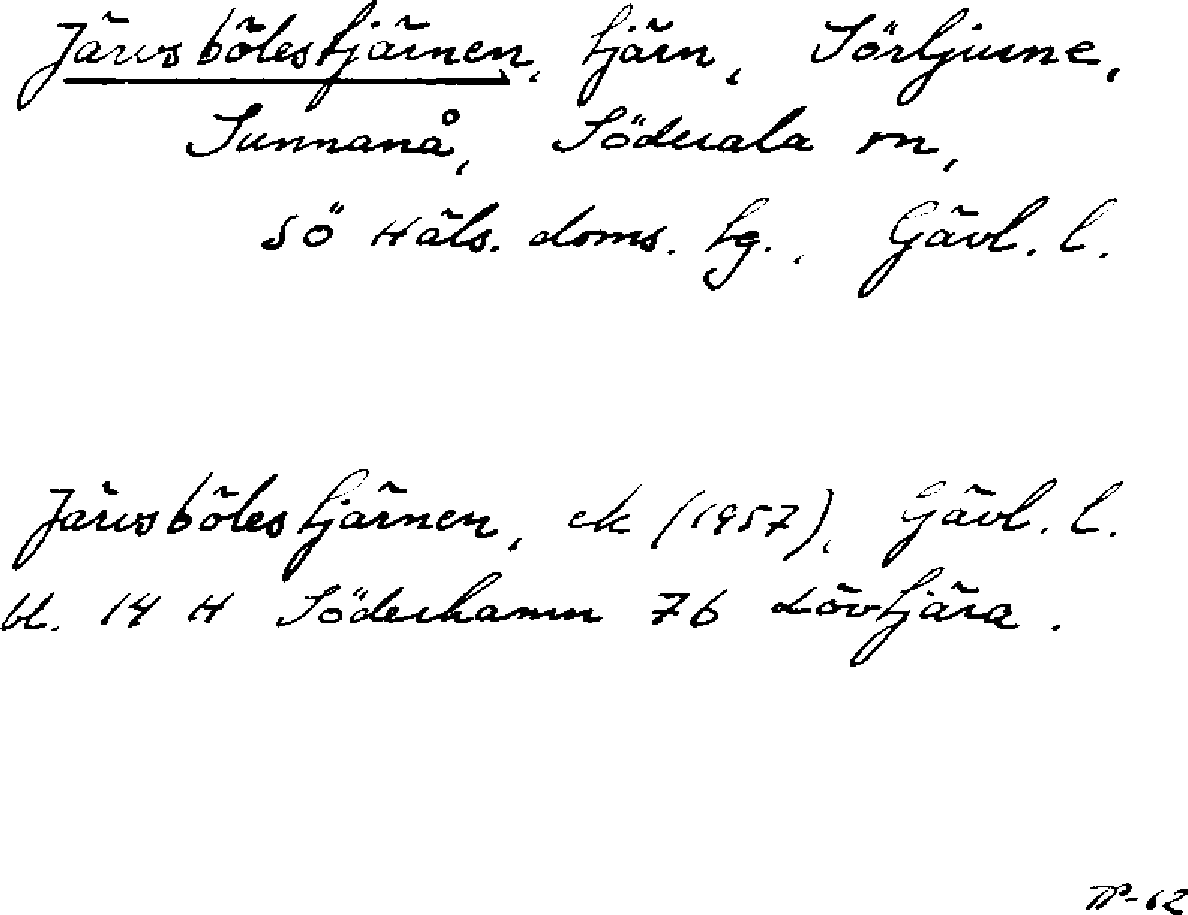 Järvsbölestjärnen, tjärn, Sörljusne,
Sunnanå, Söderala sn,
Sö Häls. doms. tg., Gävl. l.
Järvsbölestjärnen, ek (1957), Gävl. l.
bl. 14 H Söderhamn 7b Lövtjära.
-62